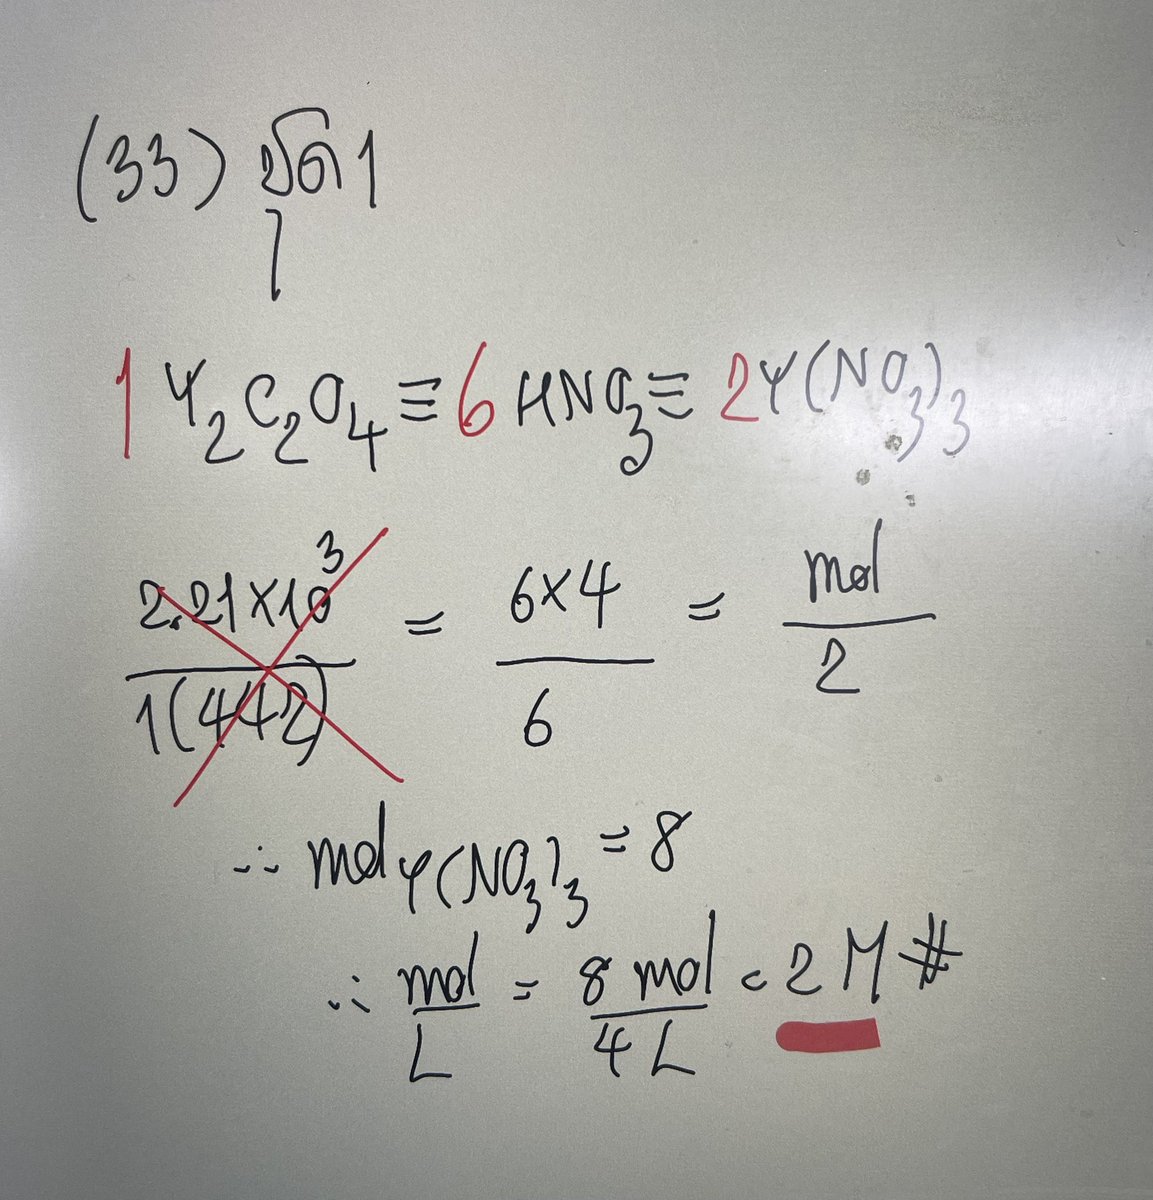 (33)
1 Y₂C₂O₄ ≡ 6 HNO₃ ≡ 2Y(NO₃)₃
2.21×10³ / 1(442) = 6×4 / 6 = mol / 2
∴ mol Y(NO₃)₃ = 8
∴ mol / L = 8 mol / 4 L = 2 M #